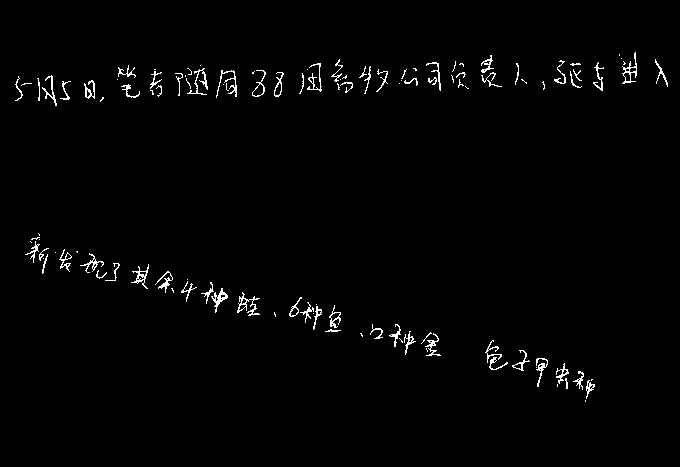 5月5日,笔者随同38团畜牧公司负责人,驱车进入
新发现了其余4种蛙、6种鱼、12种金龟子甲虫种